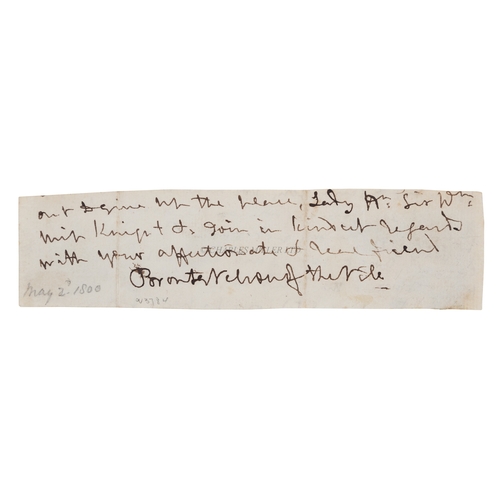 out & give up the place, Lady Hn. Sir Wm.
Miss Knight & I Join in kindest regards
with your affectionate & real friend
Bronte Nelson of the Nile
May 2d. 1800